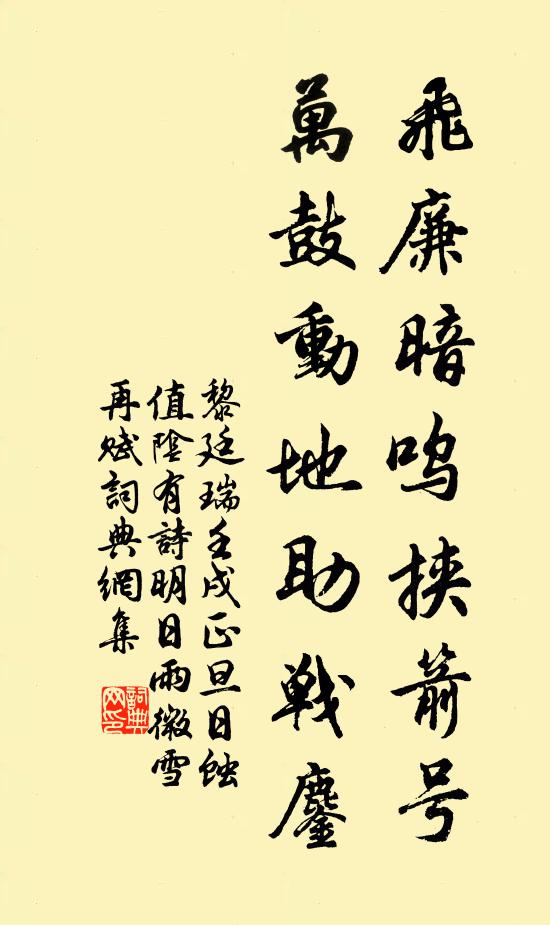 飛廉暗鸣挟箭号
萬鼓動地助戦鏖
黎廷瑞壬戌正旦日蝕
值陰有詩明日雨微雪
再赋詞典網集
詞典网印